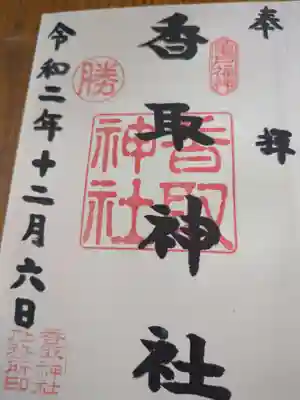 奉拝
香取神社
香取神社
勝
令和二年十二月六日
香取神社社務所印